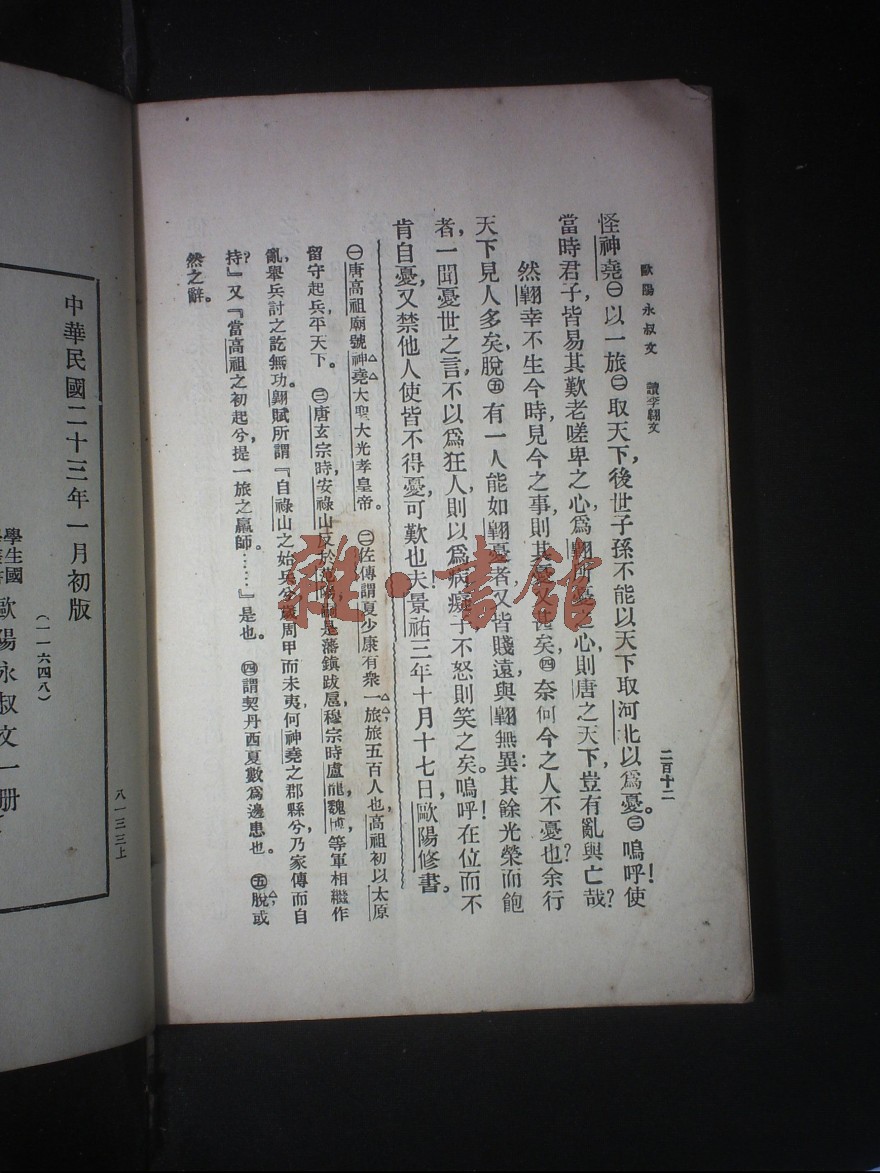 歐陽永叔文　讀李翱文
二百十二
怪神堯㊀以一旅㊁取天下，後世子孫不能以天下取河北以爲憂。㊂嗚呼！使
當時君子，皆易其歎老嗟卑之心，爲翱所憂之心，則唐之天下，豈有亂與亡哉？
然翱幸不生今時，見今之事，則其憂又甚矣，㊃奈何今之人不憂也？余行
天下，見人多矣，脫㊄有一人能如翱憂者，又皆賤遠，與翱無異；其餘光榮而飽
者，一聞憂世之言，不以爲狂人，則以爲病癡子，不怒則笑之矣。嗚呼！在位而不
肯自憂，又禁他人使皆不得憂，可歎也夫！景祐三年十月十七日，歐陽修書。
㊀唐高祖廟號神堯大聖大光孝皇帝。　㊁佐傳謂夏少康有衆一旅，旅五百人也，高祖初以太原
留守起兵，平天下。　㊂唐玄宗時，安祿山反於范陽，嗣是藩鎮跋扈，穆宗時，盧龍魏博，等軍相繼作
亂，舉兵討之，訖無功。翱賦所謂『自祿山之始兵兮，歲周甲而未夷，何神堯之郡縣兮，乃家傳而自
持？』又『當高祖之初起兮，提一旅之羸師……』是也。　㊃謂契丹西夏數爲邊患也。　㊄脫，或
然之辭。
中華民國二十三年一月初版
(一一六四八)
學生國
歐陽永叔文一册
八一三三上
雜·書館